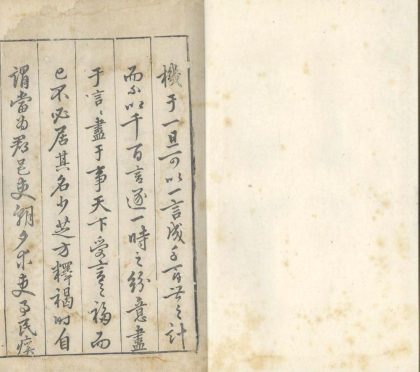 機于一旦可以一言成千百世之計
而不以千百言遂一時之紛意盡
于言言盡于事天下受言之福而
己不必居其名少芝方釋褐時自
謂當為郡邑吏朝夕求吏事民瘼